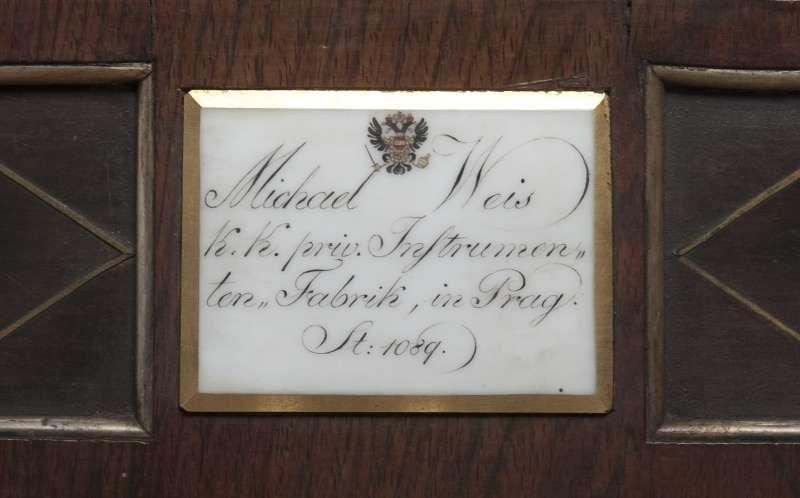 Michael Weis
K. K. priv. Inſtrumen„
ten„ Fabrik, in Prag.
St: 1089.